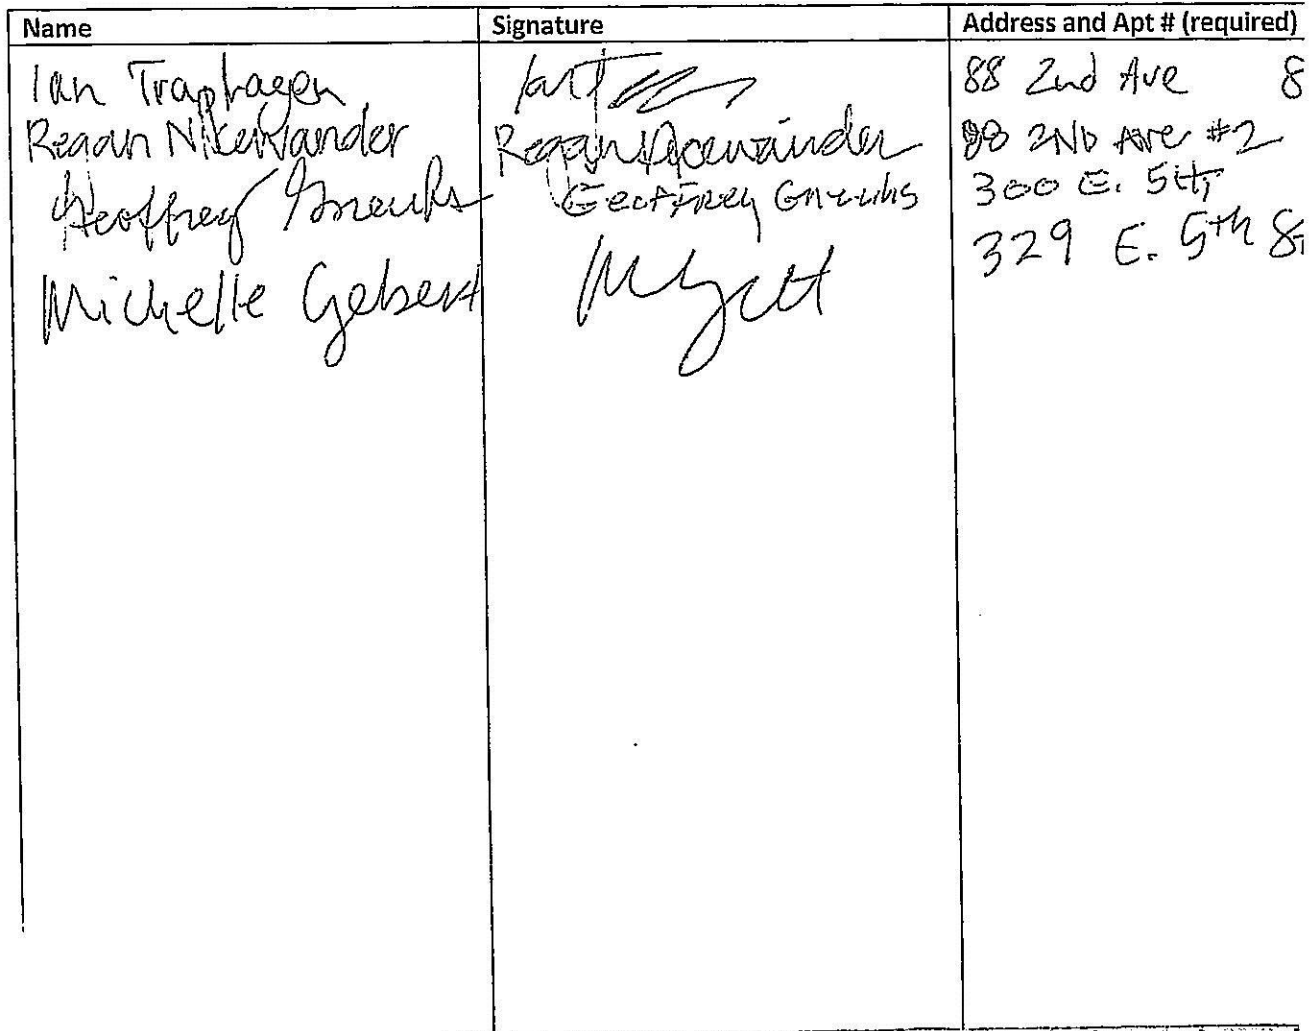 Name Signature Address and Apt # (required)
Ian Traphagen Ian T 88 2nd Ave 8
Regan Nicewander Regan Nicewander 88 2ND Ave #2
Geoffrey Geoffrey 300 E. 5th
Michelle Gebert 329 E. 5th St